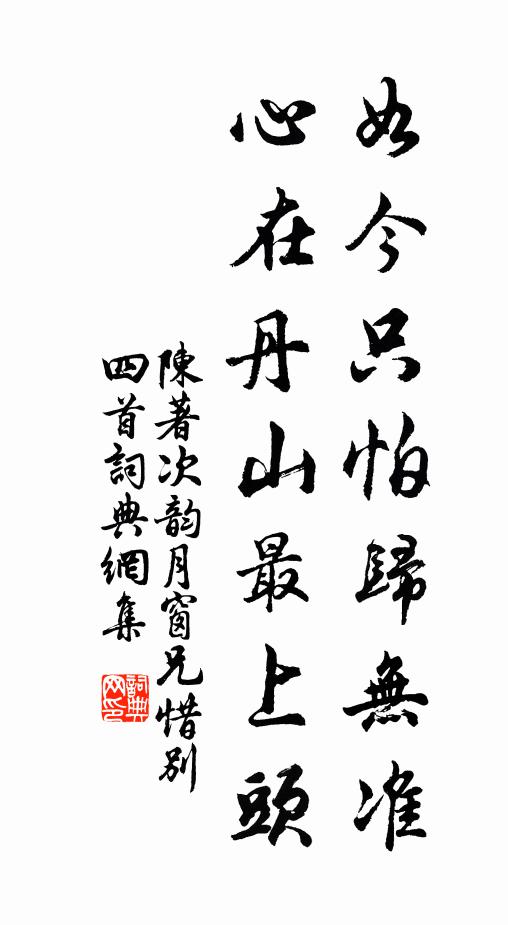 如今只怕歸無准
心在丹山最上頭
陳著次韵月窗兄惜別
四首詞典網集
詞典网印